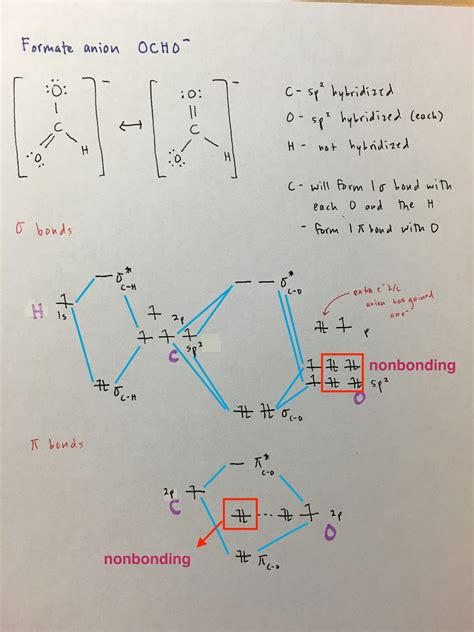 Formate anion OCHO⁻
:Ö: − :O: −
C C
:O: H :O: H
C - sp² hybridized
O - sp² hybridized (each)
H - not hybridized
C - will form 1 σ bond with
each O and the H
- form 1 π bond with O
σ bonds
σ* C-H
σ* C-O
extra e⁻ b/c
anion has gained
one
H 1s
2p
sp²
C
p
nonbonding
sp²
O
σ C-H
σ C-O
π bonds
π* C-O
2p
C
2p
O
nonbonding
π C-O